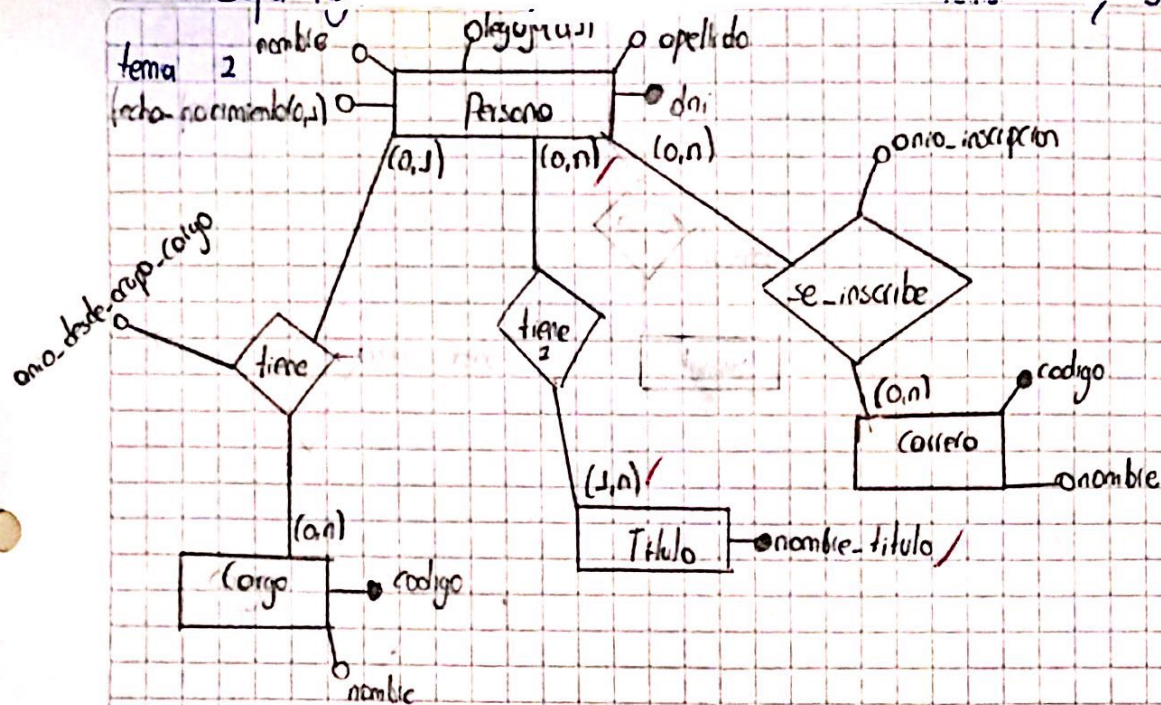 tema 2
nombre
apellido
fecha_nacimiento(0,1)
Persona
dni
(0,1)
(0,n)
(0,n)
anio_inscripcion
anio_desde_ocupo_cargo
tiene
tiene
2
se_inscribe
(0,n)
codigo
Carrera
nombre
(1,n)
Titulo
nombre_titulo
(0,n)
Cargo
codigo
nombre